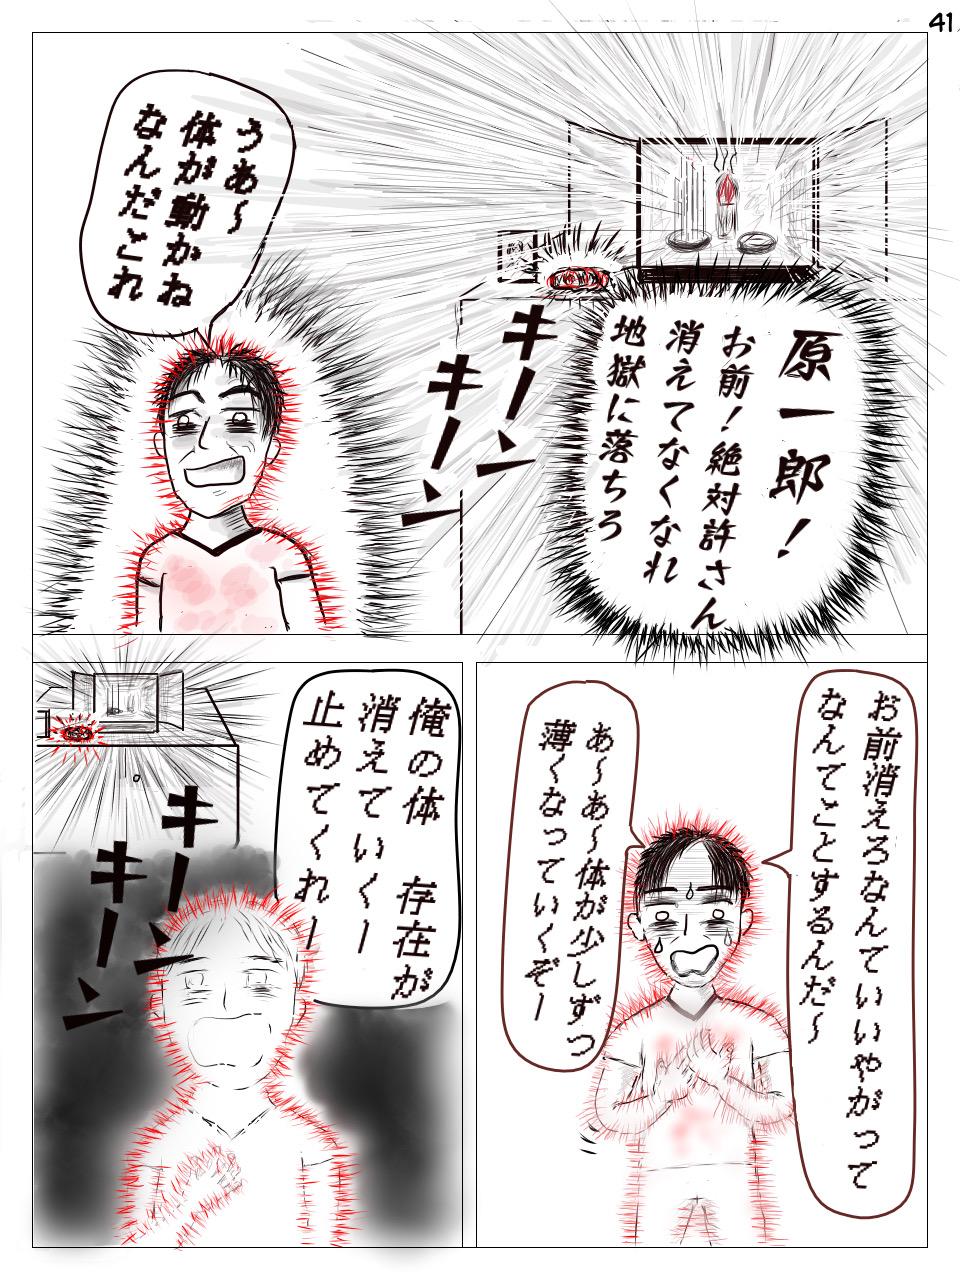 41
原一郎!
お前!絶対許さん
消えてなくなれ
地獄に落ちろ
キーン
キーン
うあ～
体が動かね
なんだこれ
お前消えろなんていいやがって
なんてことするんだ～
あ～あ～体が少しずつ
薄くなっていくぞー
俺の体 存在が
消えていくー
止めてくれー
キーン
キーン